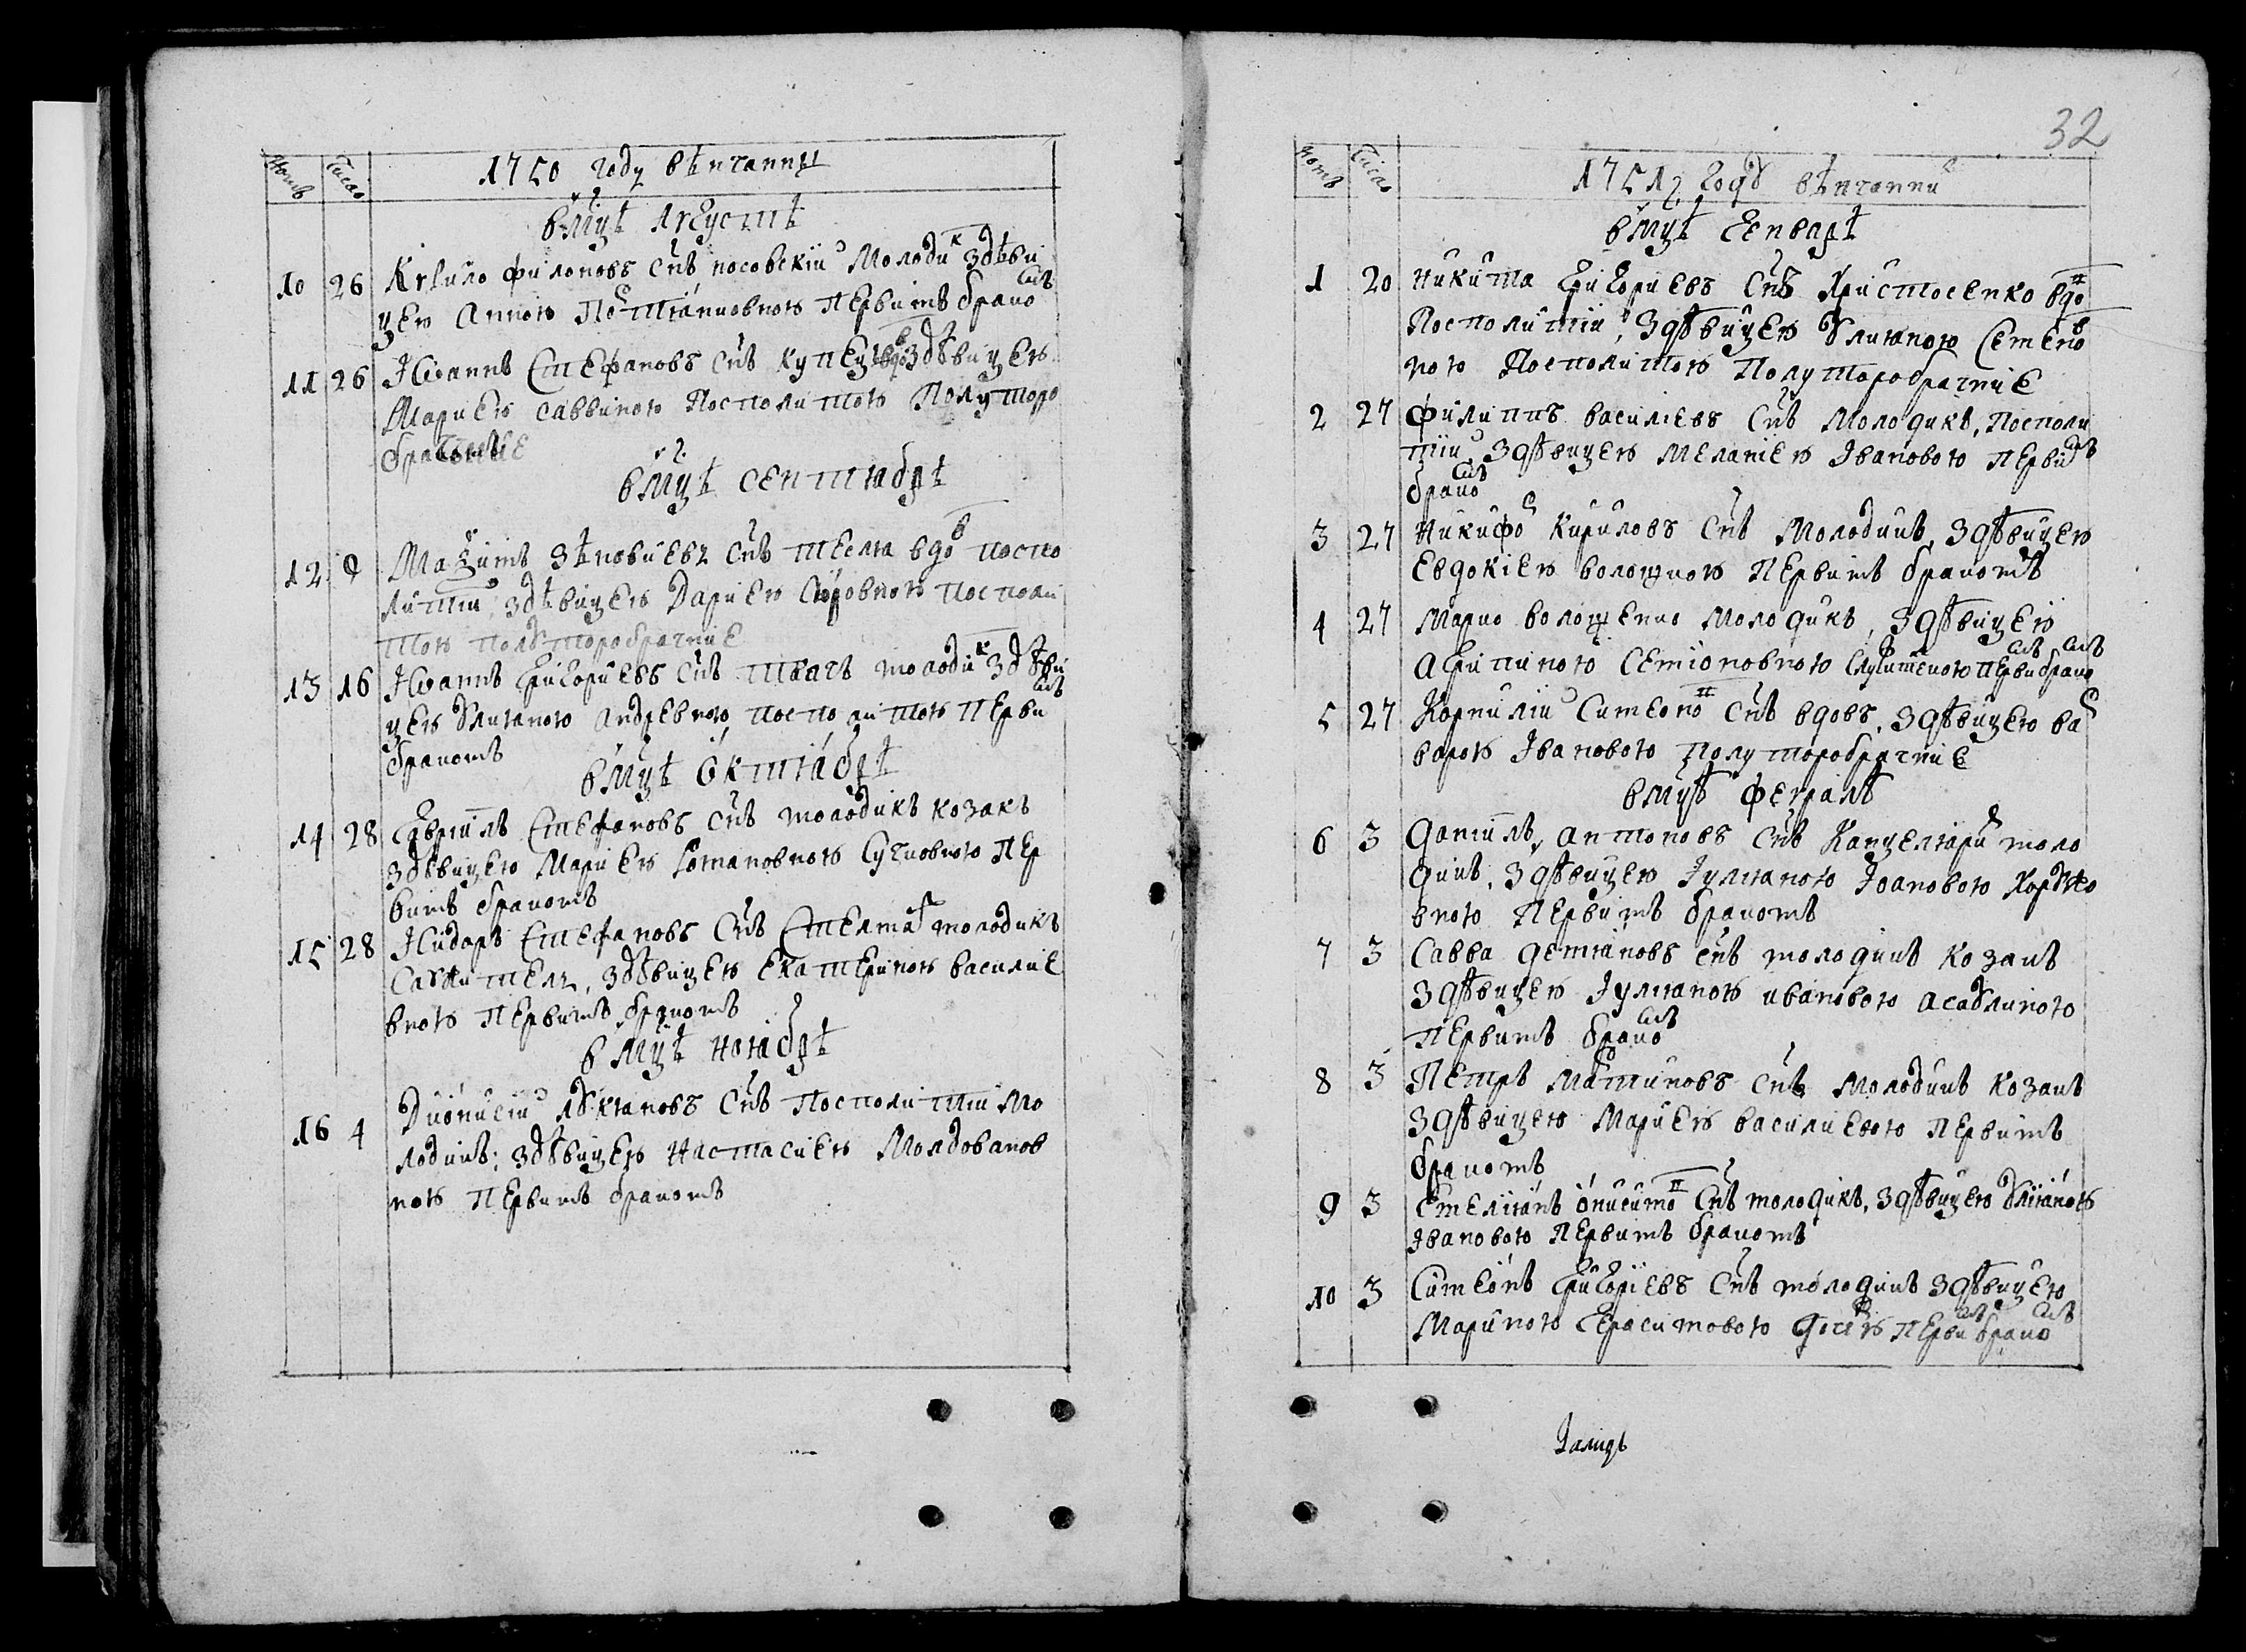 Номъ Число 1750 году вѣнчанны
вмцѣ Августѣ
10 26 Кирило Филоновъ снъ носовскїй Молодик здѣви
цею Анною Перви́мъ бракомъ
11 26 Іѡаннъ Стефановъ снъ купецъ здѣвицею
Мариею Саввиною Посполитою Полуторо
брачніе
вмцѣ Септиабрѣ
12 9 Маѯимъ Зѣновиевъ снъ тесля вдов поспо
литїй, здѣвицею Дариею посполи
тою полꙋторобрачние
13 16 Іѡаннъ Григориевъ снъ ткачъ молодик здѣви
цею Ꙋлианою Андреевною посполитою Перви
бракомъ
вмцѣ Октиабрѣ
14 28 Гавріилъ Стефановъ снъ молодикъ козакъ
здѣвицею Мариею Романовною Сучковною Пер
вимъ бракомъ
15 28 Исидоръ Стефановъ снъ Стелмах молодикъ
здѣвицею Екатериною Василие
вною Первимъ бракомъ
вмцѣ Ноіабрѣ
16 4 Дионисїй Лꙋкіановъ снъ Посполитїй Мо
лодикъ: здѣвицею Настасиею Молдованов
ною Первимъ бракомъ
32
Номъ Число 1751 годꙋ вѣнчанни
вмцѣ Генварѣ
1 20 Никита Григориевъ снъ Христосенко вдов
Посполитїй, здѣвицею Ꙋлианою Семенов
ною Посполитою Полуторобрачние
2 27 Филиппъ Василіевъ снъ Молодикъ, Посполи
тїй здѣвицею Меланіею Івановою перви
бракомъ
3 27 Никифор Кириловъ снъ Молодикъ, здѣвицею
Евдокіею Волощкою Первимъ бракомъ
4 27 Марко Волощенко Молодикъ, здѣвицею
Агрипиною Семіоновною первимъ бракомъ
5 27 Корнилій Симеонов снъ вдовъ, здѣвицею Вар
варою Івановою Полуторобрачние
вмцѣ Февралѣ
6 3 Даніилъ Антоновъ снъ Канцеляри моло
дикъ, здѣвицею Іулианою Іоановою Корж
вною Первимъ бракомъ
7 3 Савва Деміановъ снъ молодикъ козакъ
здѣвицею Іулианою Ивановою Асаꙋлиною
Первимъ бракомъ
8 3 Петръ Мартиновъ снъ Молодикъ козакъ
здѣвицею Мариею Василиевою Первимъ
бракомъ
9 3 Емеліанъ Онисимов снъ молодикъ, здѣвицею Ꙋліаною
Івановою Первимъ бракомъ
10 3 Симеонъ Григоріевъ снъ молодикъ здѣвицею
Мариною Герасимовою первимъ бракомъ